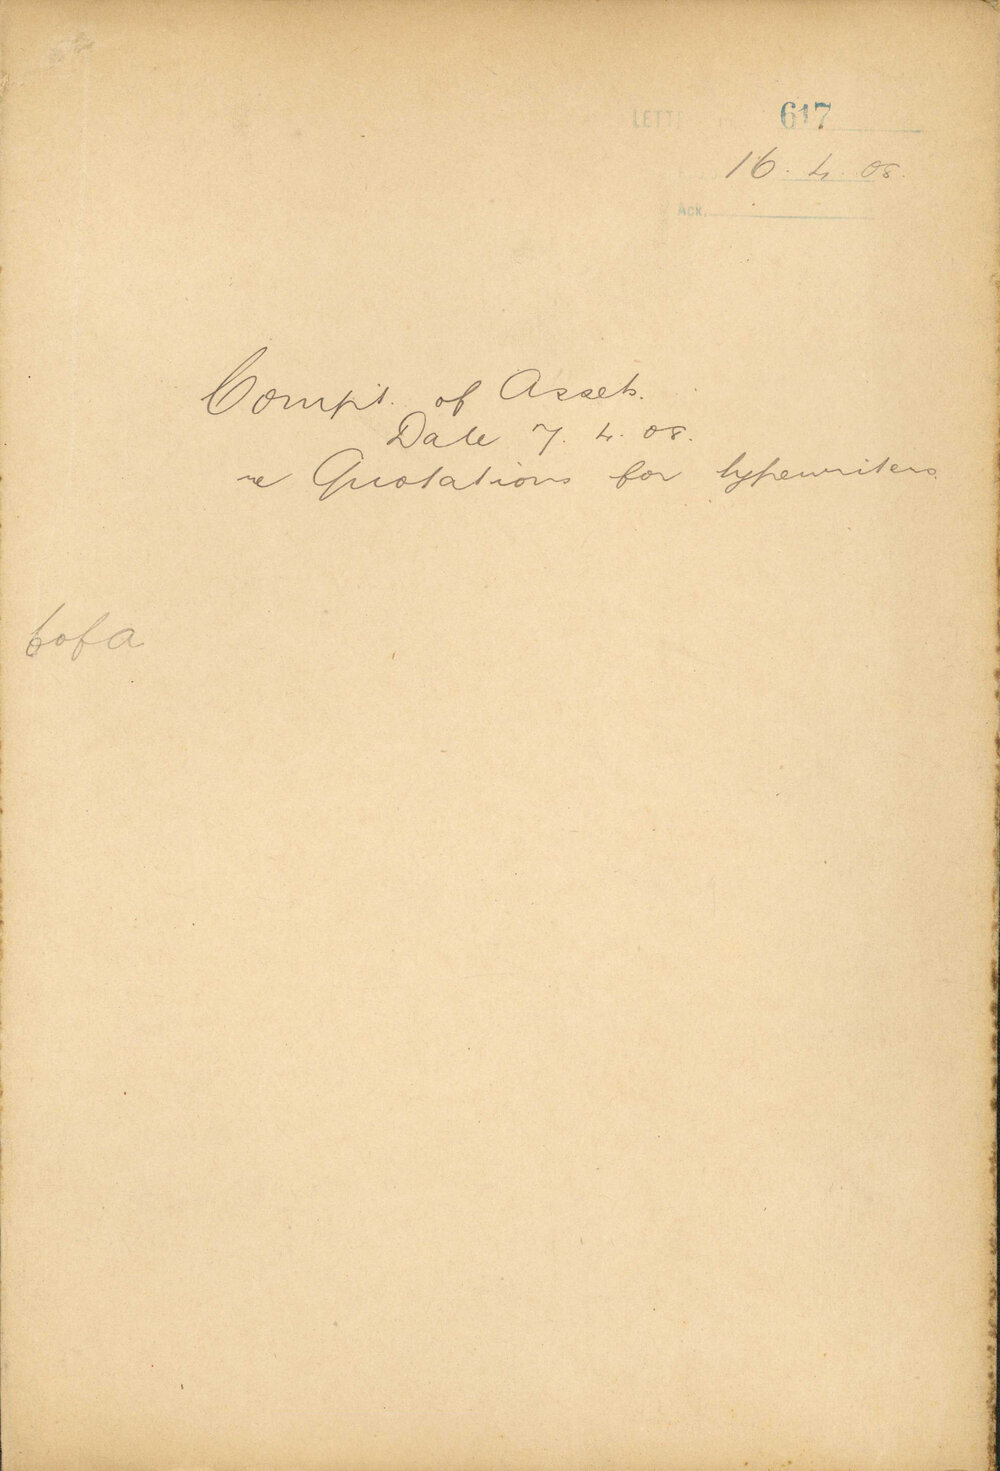 LETTE 617
16. 4. 08.
Ack.
Compt. of Assets.
Date 7. 4. 08.
re Quotations for typewriters
C of A